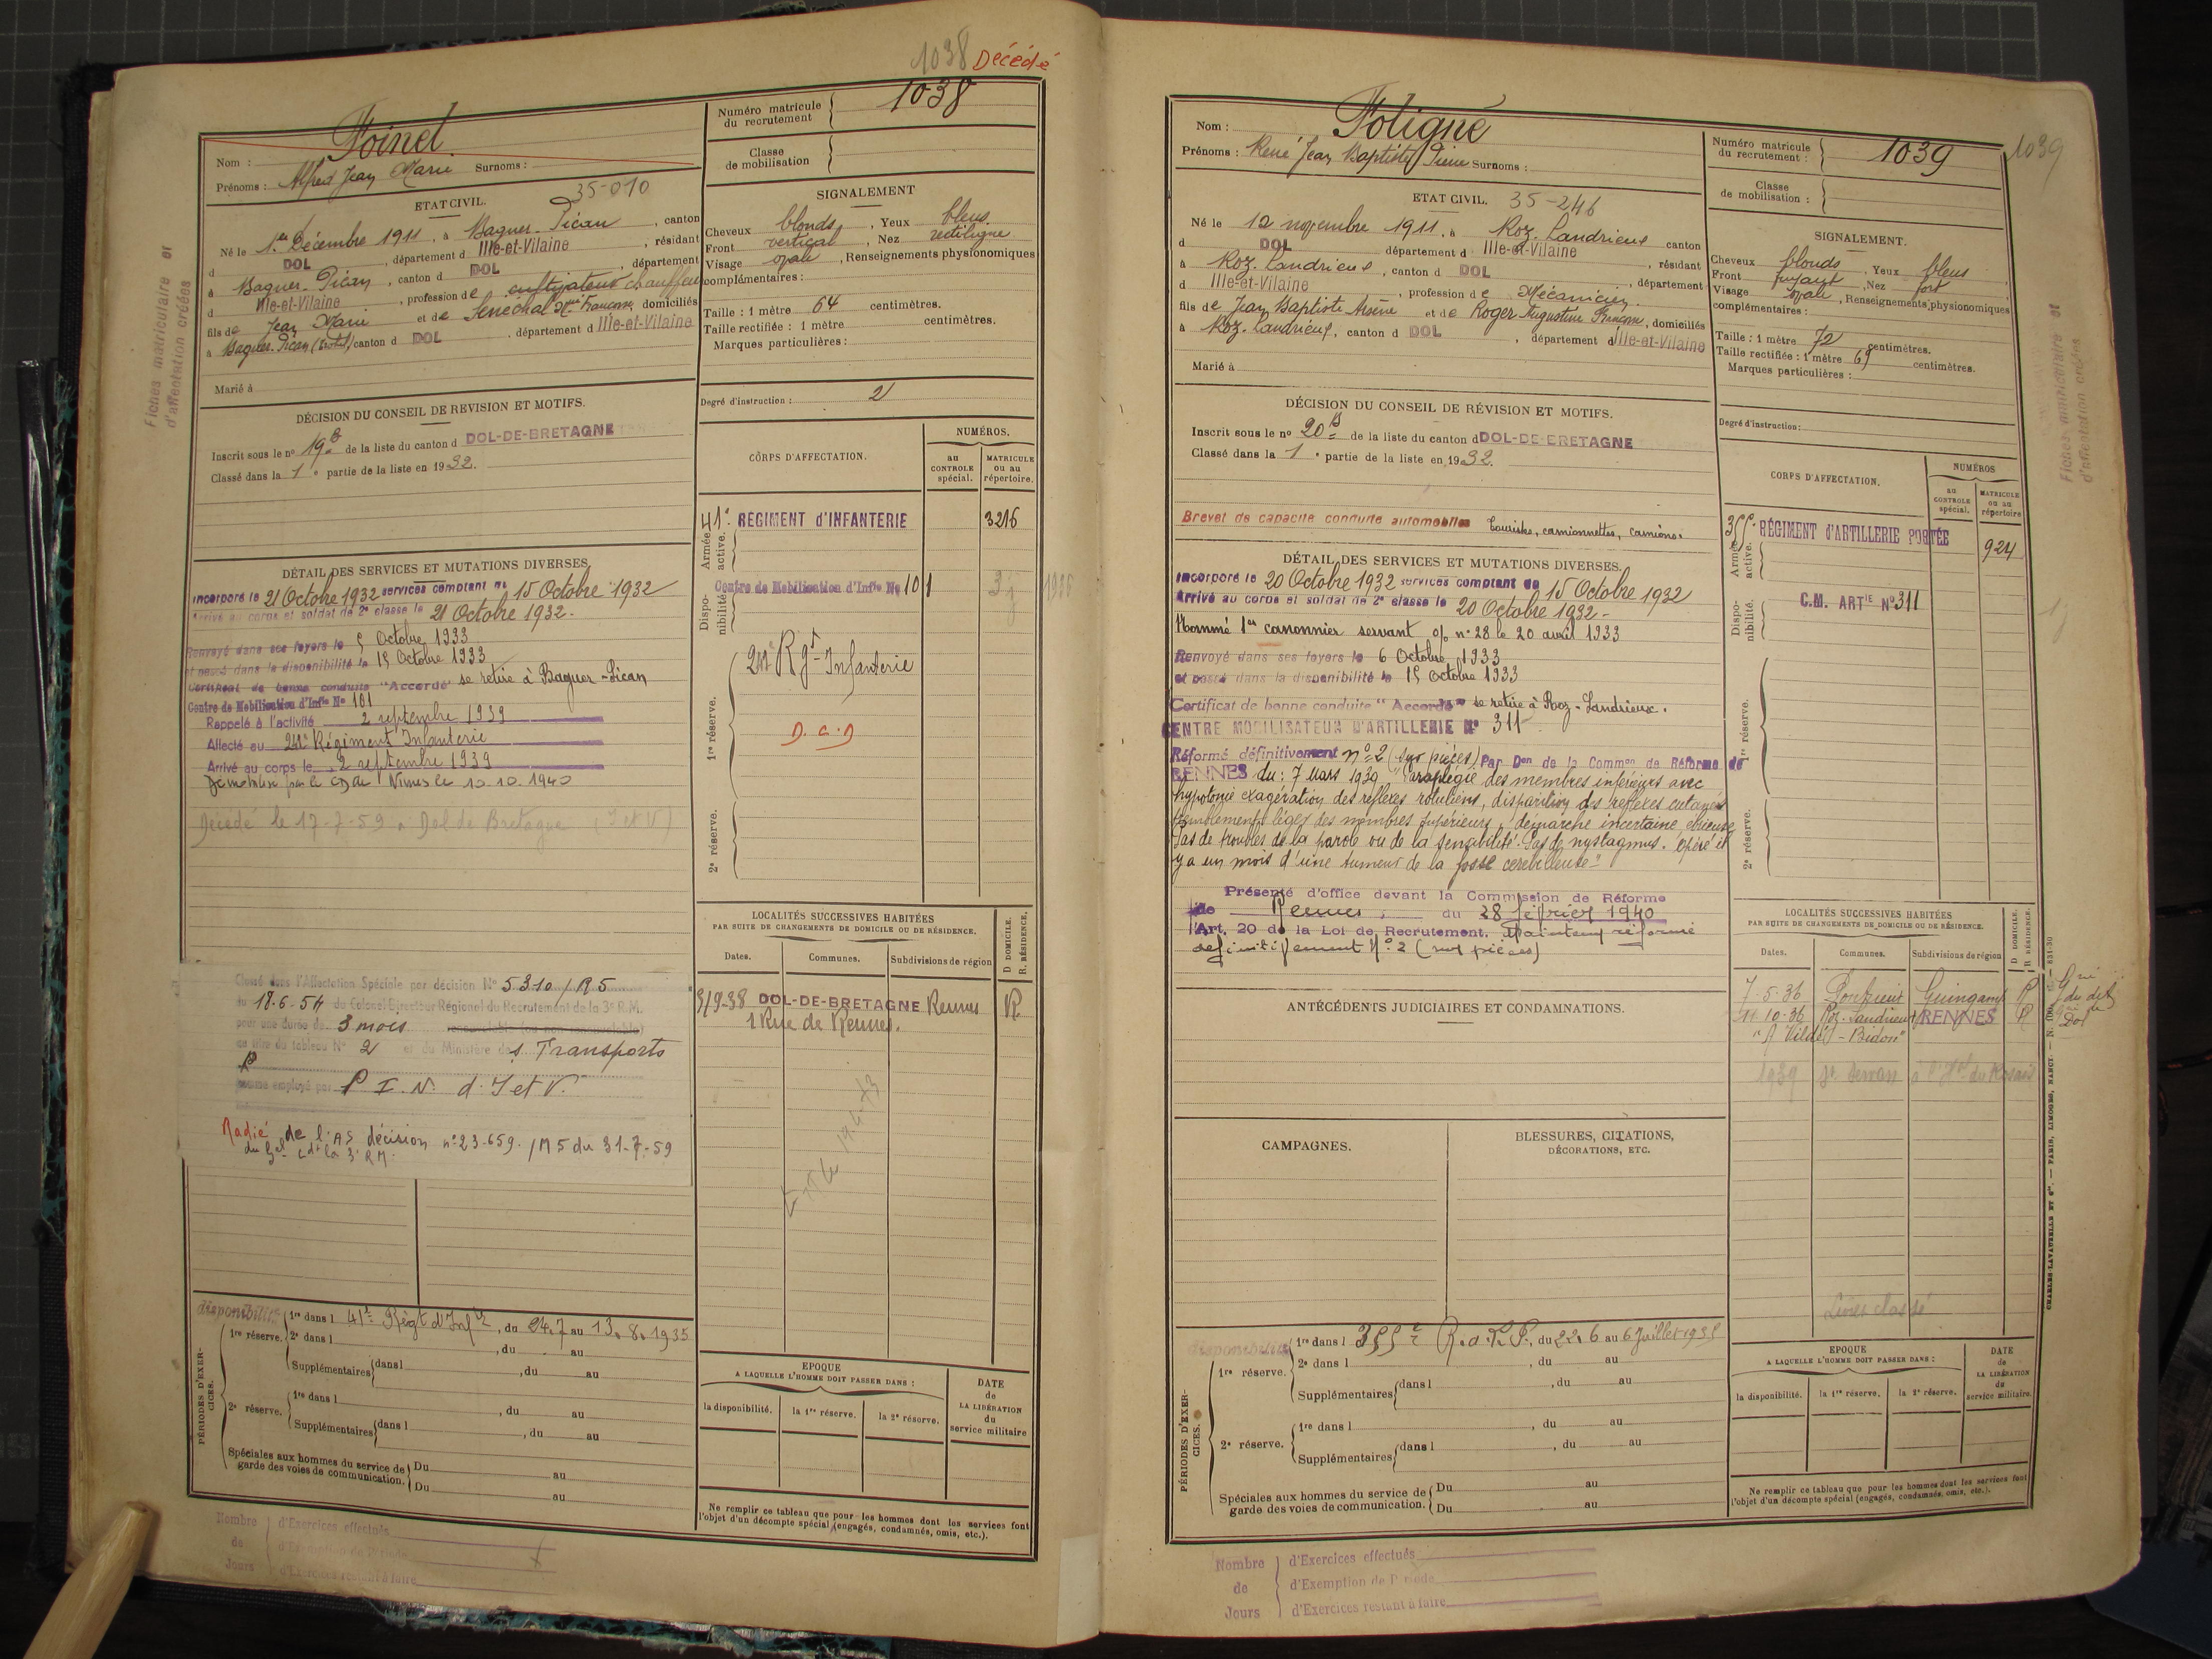 1038 Décédé
Nom : Foinel
Prénoms : Alfred Jean Marie Surnoms :
35-010
ETAT CIVIL.
Né le 1er Décembre 1911, à Baguer-Pican, canton
d DOL, département d Ille-et-Vilaine, résidant
à Baguer-Pican, canton d DOL, département
d Ille-et-Vilaine, profession de cultivateur chauffeur
fils de Jean Marie et de Sénéchal Mie Françoise, domiciliés
à Baguer-Pican canton d DOL, département d Ille-et-Vilaine
Marié à
DÉCISION DU CONSEIL DE REVISION ET MOTIFS.
Inscrit sous le no 19 de la liste du canton d DOL-DE-BRETAGNE
Classé dans la 1e partie de la liste en 1932.
DÉTAIL DES SERVICES ET MUTATIONS DIVERSES.
Incorporé le 21 Octobre 1932 services comptant du 15 Octobre 1932
Arrivé au corps et soldat de 2e classe le 21 Octobre 1932.
Renvoyé dans ses foyers le 5 Octobre 1933
et passé dans la disponibilité le 15 Octobre 1933
Certificat de bonne conduite "Accordé" se retire à Baguer-Pican
Centre de Mobilisation d'Infie No 101
Rappelé à l'activité 2 septembre 1939
Affecté au 241e Régiment Infanterie
Arrivé au corps le 2 septembre 1939
Démobilisé par le CD de Nimes le 10.10.1940
Décédé le 17-7-59 à Dol de Bretagne (I et V)
Classé dans l'Affectation Spéciale par décision No 5310/R5
du 18-6-54 du Colonel Directeur Régional du Recrutement de la 3e R.M.
pour une durée de 3 mois
au titre du tableau No 2 et du Ministère des Transports
comme employé par P I. N. d. I et V.
Radié de l'AS décision no 23-659. /M5 du 31-7-59
du Gel Cdt la 3e RM.
PÉRIODES D'EXERCICES.
disponibilité
1re réserve. 1re dans l 41e Régt d'Infie, du 24.7 au 13.8.1935
2e dans l , du au
Supplémentaires dans l , du au
2e réserve. 1re dans l , du au
Supplémentaires dans l , du au
Spéciales aux hommes du service de garde des voies de communication. Du au
Du au
Nombre de Jours
d'Exercices effectués
d'Exemption de Période
d'Exercices restant à faire
Numéro matricule du recrutement 1038
Classe de mobilisation
SIGNALEMENT
Cheveux blonds, Yeux bleus.
Front vertical, Nez rectiligne
Visage ovale, Renseignements physionomiques
complémentaires :
Taille : 1 mètre 64 centimètres.
Taille rectifiée : 1 mètre centimètres.
Marques particulières :
Degré d'instruction : 2
CORPS D'AFFECTATION.
NUMÉROS.
au CONTROLE spécial.
MATRICULE ou au répertoire.
Armée active.
41e RÉGIMENT d'INFANTERIE 3216
Disponibilité.
Centre de Mobilisation d'Infie No 101
1936
1re réserve.
241e Rgt Infanterie
D.C.D
2e réserve.
LOCALITÉS SUCCESSIVES HABITÉES
PAR SUITE DE CHANGEMENTS DE DOMICILE OU DE RÉSIDENCE.
Dates. Communes. Subdivisions de région D DOMICILE. R. RÉSIDENCE.
DOL-DE-BRETAGNE Rennes R
1 Rue de Rennes.
EPOQUE
A LAQUELLE L'HOMME DOIT PASSER DANS :
la disponibilité. la 1re réserve. la 2e réserve.
DATE de LA LIBÉRATION du service militaire
Ne remplir ce tableau que pour les hommes dont les services font
l'objet d'un décompte spécial (engagés, condamnés, omis, etc.).
Fiches matriculaire et
d'affectation créées
Nom : Foligné
Prénoms : René Jean Baptiste Pierre Surnoms :
ETAT CIVIL. 35-246
Né le 12 novembre 1911, à Roz-Landrieux canton
d DOL département d Ille-et-Vilaine, résidant
à Roz-Landrieux, canton d DOL, département
d Ille-et-Vilaine, profession de Mécanicien.
fils de Jean Baptiste Arsène et de Roger Augustine Françoise, domiciliés
à Roz-Landrieux, canton d DOL, département d Ille-et-Vilaine
Marié à
DÉCISION DU CONSEIL DE RÉVISION ET MOTIFS.
Inscrit sous le no 20 de la liste du canton d DOL-DE-BRETAGNE
Classé dans la 1e partie de la liste en 1932.
Brevet de capacité conduite automobiles Touriste, camionnettes, camions.
DÉTAIL DES SERVICES ET MUTATIONS DIVERSES.
Incorporé le 20 Octobre 1932 services comptant du 15 Octobre 1932
Arrivé au corps et soldat de 2e classe le 20 Octobre 1932.
Nommé 1er canonnier servant o/o no 28 le 20 avril 1933
Renvoyé dans ses foyers le 6 Octobre 1933
et passé dans la disponibilité le 15 Octobre 1933
Certificat de bonne conduite "Accordé" se retire à Roz-Landrieux.
CENTRE MOBILISATEUR D'ARTILLERIE No 311
Réformé définitivement no 2 (sur pièces) Par Don de la Common de Réforme de
RENNES du : 7 Mars 1939 "Paraplégie des membres inférieurs avec
hypotonie exagération des réflexes rotuliens, disparition des réflexes cutanés
tremblements légers des membres supérieurs, démarche incertaine, ébrieuse
Pas de troubles de la parole ou de la sensibilité. Pas de nystagmus. Opéré il
y a un mois d'une tumeur de la fosse cérébelleuse"
Présenté d'office devant la Commission de Réforme
de Rennes, du 28 février 1940
Art. 20 de la Loi de Recrutement. Maintenu réformé
définitivement No 2 (sur pièces)
ANTÉCÉDENTS JUDICIAIRES ET CONDAMNATIONS.
CAMPAGNES.
BLESSURES, CITATIONS,
DÉCORATIONS, ETC.
PÉRIODES D'EXERCICES.
disponibilité
1re réserve. 1re dans l 355e R.A.P., du 22.6 au 6 Juillet 1935
2e dans l , du au
Supplémentaires dans l , du au
2e réserve. 1re dans l , du au
Supplémentaires dans l , du au
Spéciales aux hommes du service de garde des voies de communication. Du au
Du au
Nombre de Jours
d'Exercices effectués
d'Exemption de Période
d'Exercices restant à faire
Numéro matricule du recrutement : 1039
1039
Classe de mobilisation :
SIGNALEMENT.
Cheveux blonds, Yeux bleus
Front fuyant, Nez fort
Visage ovale, Renseignements physionomiques
complémentaires :
Taille : 1 mètre 72 centimètres.
Taille rectifiée : 1 mètre 69 centimètres.
Marques particulières :
Degré d'instruction :
CORPS D'AFFECTATION.
NUMÉROS
au CONTROLE spécial.
MATRICULE ou au répertoire
Armée active.
355e RÉGIMENT D'ARTILLERIE PORTÉE 924
Disponibilité.
C.M. ARTIE No 311
1re réserve.
2e réserve.
LOCALITÉS SUCCESSIVES HABITÉES
PAR SUITE DE CHANGEMENTS DE DOMICILE OU DE RÉSIDENCE.
Dates. Communes. Subdivisions de région D DOMICILE. R RÉSIDENCE.
7-5-36 Pontrieux Guingamp R
11-10-36 Roz-Landrieux RENNES R
"A Vildé-Bidon"
1939 St Servan
Livret classé
EPOQUE
A LAQUELLE L'HOMME DOIT PASSER DANS :
la disponibilité. la 1re réserve. la 2e réserve.
DATE de LA LIBÉRATION du service militaire.
Ne remplir ce tableau que pour les hommes dont les services font
l'objet d'un décompte spécial (engagés, condamnés, omis, etc.).
Fiches matriculaire et
d'affectation créées
CHARLES-LAVAUZELLE ET Cie. — PARIS, LIMOGES, NANCY.